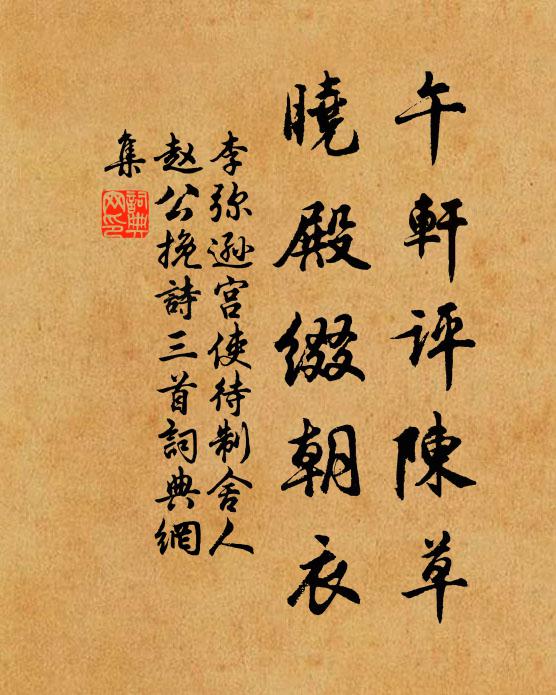 午軒評陳草
曉殿綴朝衣
李弥遜宮使待制舍人
赵公挽詩三首詞典網
集
詞典网印